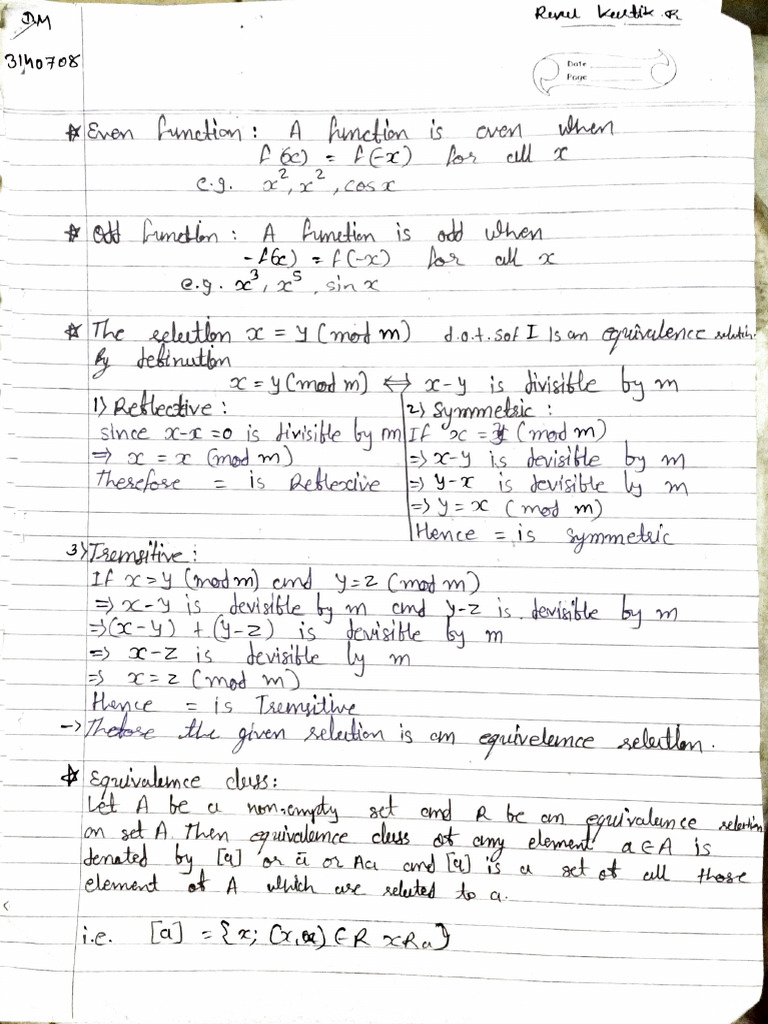 DM
3140708
Date
Page
* Even function : A function is even when
f(x) = f(-x) for all x
e.g. x², x², cosx
* Odd function : A function is odd when
-f(x) = f(-x) for all x
e.g. x³, x⁵, sin x
* The relation x = y (mod m) d.o.t. s of I is an equivalence relation
By definition
x = y (mod m) ⇔ x-y is divisible by m
1) Reflective :
since x-x=0 is divisible by m
⇒ x = x (mod m)
Therefore = is Reflexive
2) Symmetric :
If x = y (mod m)
⇒ x-y is devisible by m
⇒ y-x is devisible by m
⇒ y = x (mod m)
Hence = is symmetric
3) Transitive :
If x = y (mod m) and y = z (mod m)
⇒ x-y is devisible by m and y-z is devisible by m
⇒ (x-y) + (y-z) is devisible by m
⇒ x-z is devisible by m
⇒ x = z (mod m)
Hence = is Transitive
-> Thefore the given relation is an equivelence relation.
* Equivalence class:
Let A be a non-empty set and R be an equivalence relation
on set A. Then equivalence class of any element a ∈ A is
denated by [a] or ā or Aa and [a] is a set of all those
element of A which are related to a.
i.e. [a] = {x; (x,a) ∈ R xRa}